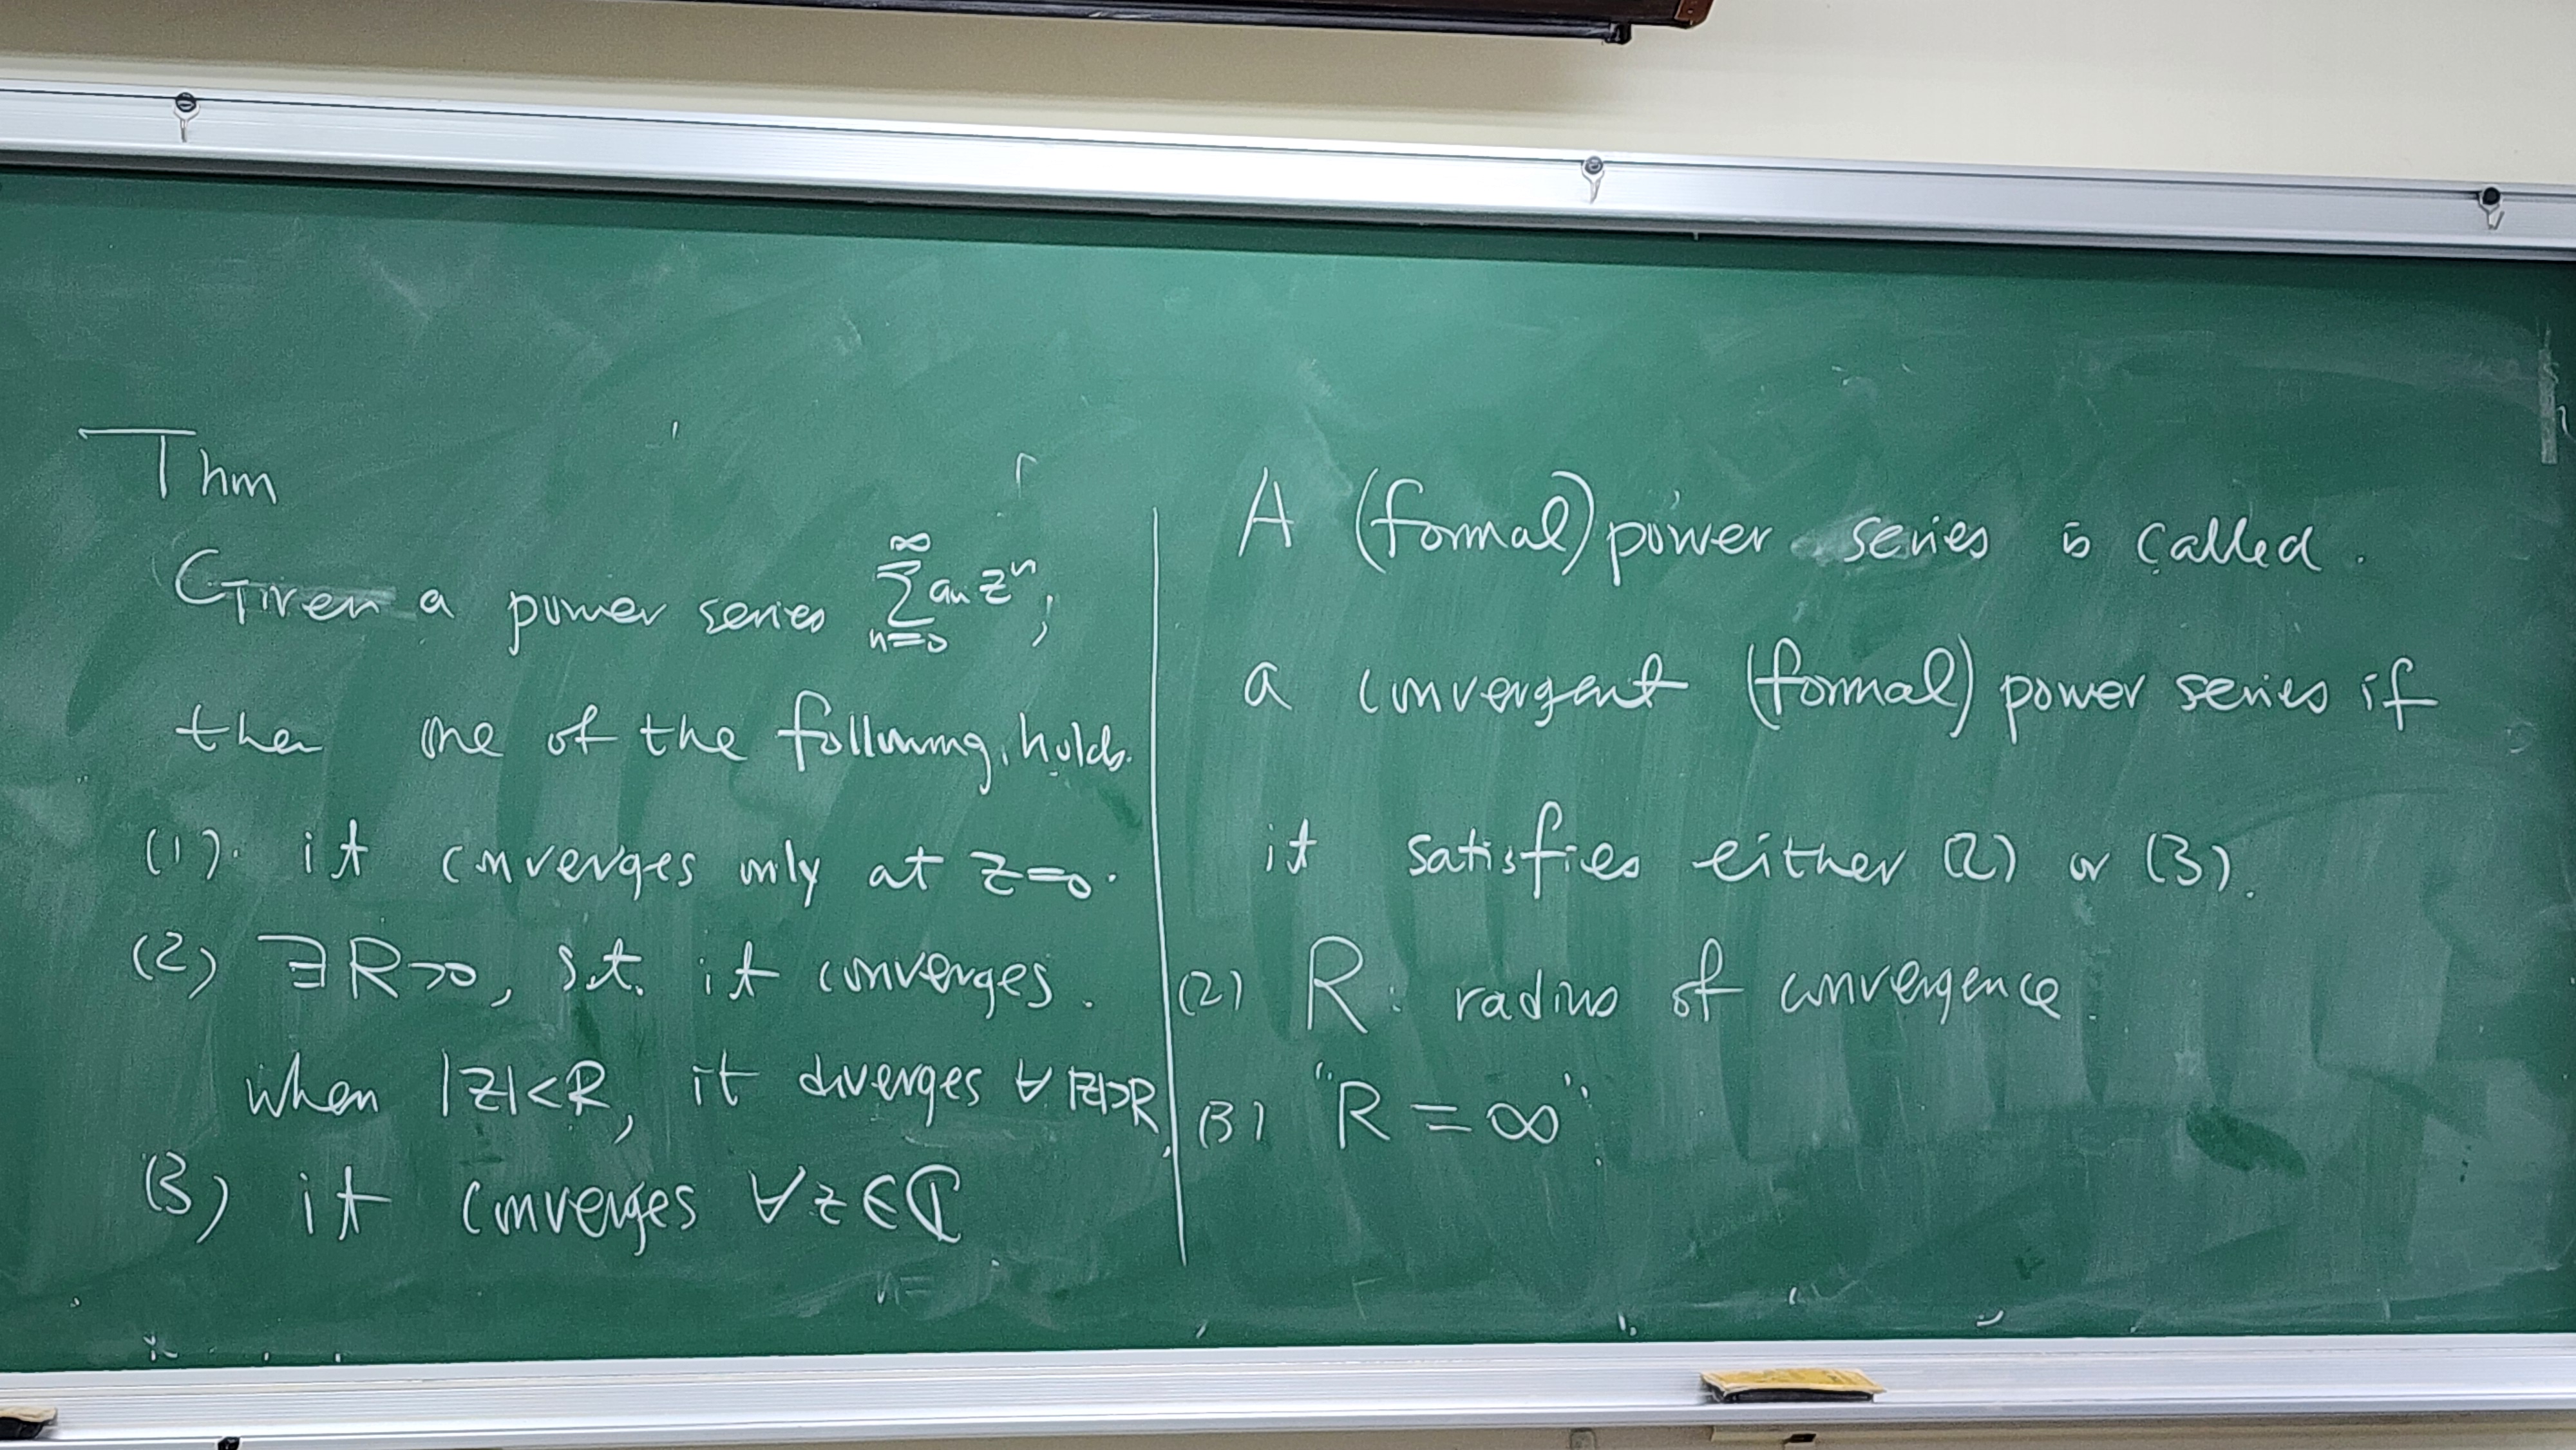 Thm
Given a power series $\sum_{n=0}^{\infty} a_n z^n$;
then one of the following holds.
(1). it converges only at z=0.
(2) ∃R>0, s.t. it converges.
when |z|<R, it diverges ∀ |z|>R.
(3) it converges ∀z∈ℂ
n=
A (formal) power series is called.
a convergent (formal) power series if
it satisfies either (2) or (3).
(2) R: radius of convergence
(3) "R = ∞".